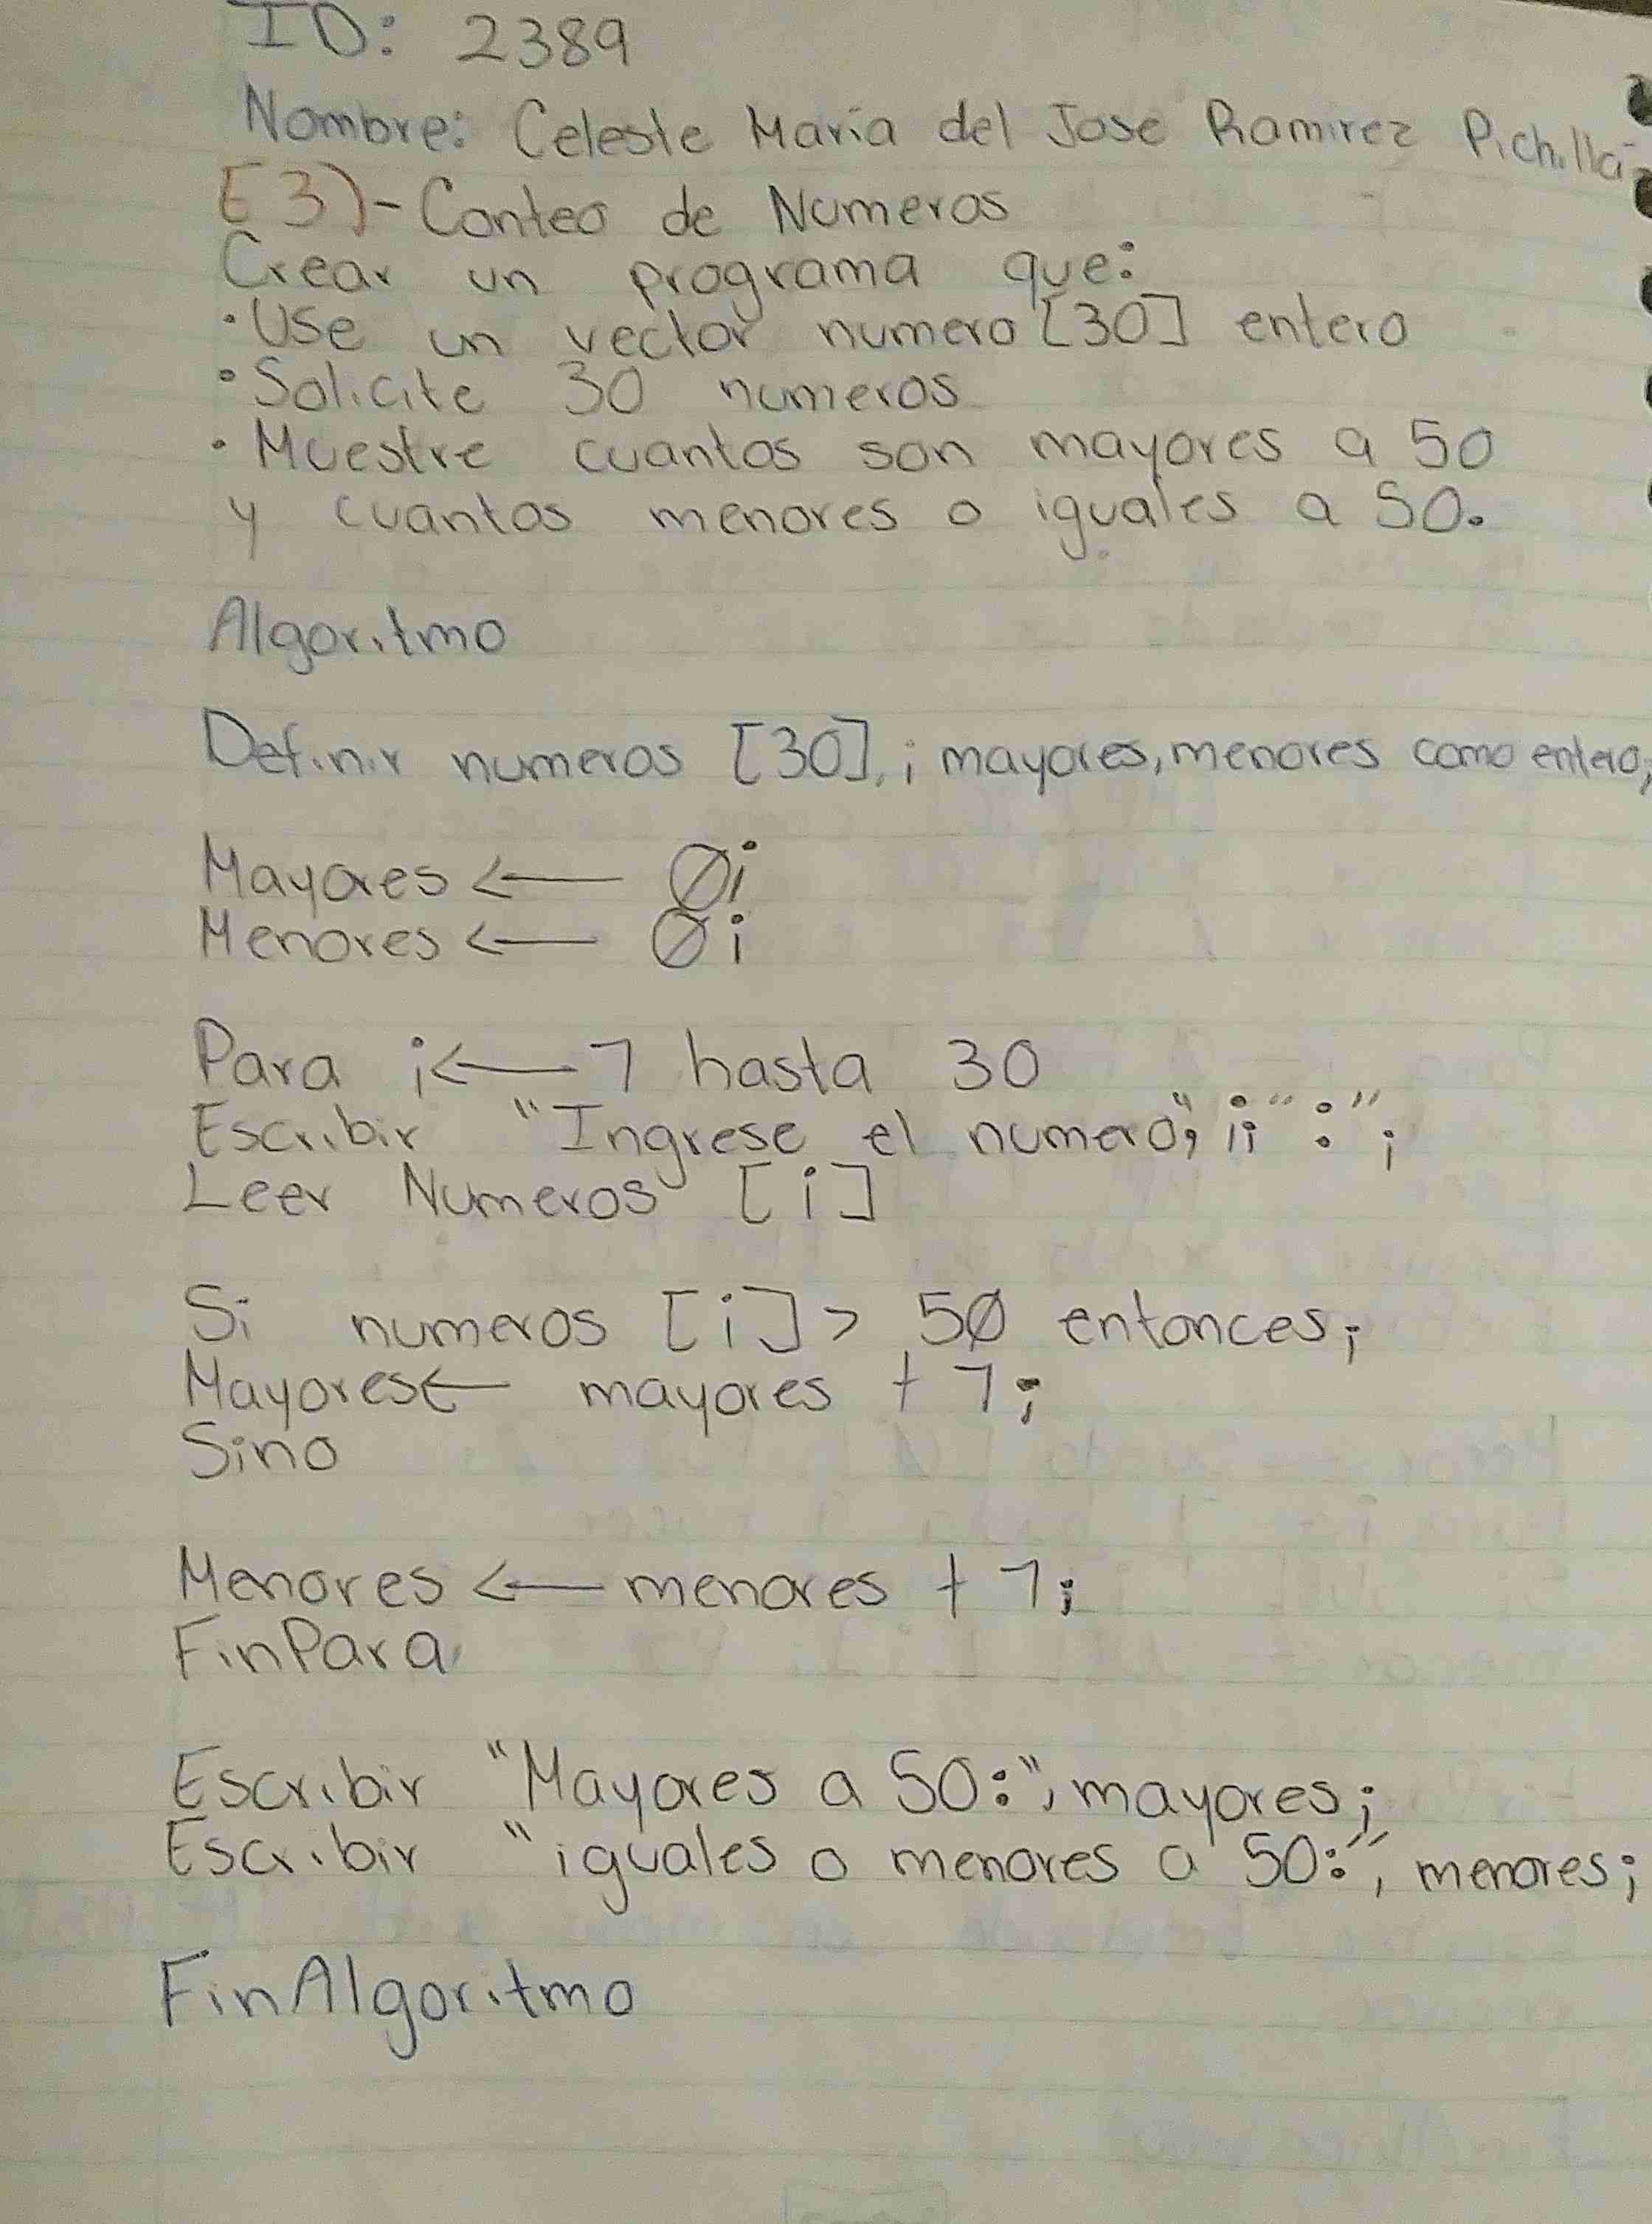 ID: 2389
Nombre: Celeste María del Jose Ramirez Pichillá
E3)- Conteo de Numeros
Crear un programa que:
• Use un vector numero [30] entero
• Solicite 30 numeros
• Muestre cuantos son mayores a 50
y cuantos menores o iguales a 50.
Algoritmo
Definir numeros [30], i mayores, menores como entero;
Mayores ← 0;
Menores ← 0;
Para i ← 1 hasta 30
Escribir "Ingrese el numero", i; ":";
Leer Numeros [i]
Si numeros [i] > 50 entonces;
Mayores ← mayores + 1;
Sino
Menores ← menores + 1;
FinPara
Escribir "Mayores a 50:", mayores;
Escribir "iguales o menores a 50:", menores;
FinAlgoritmo